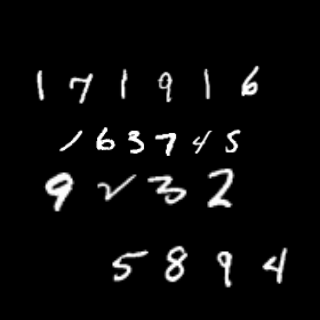 171916
163745
9232
5894